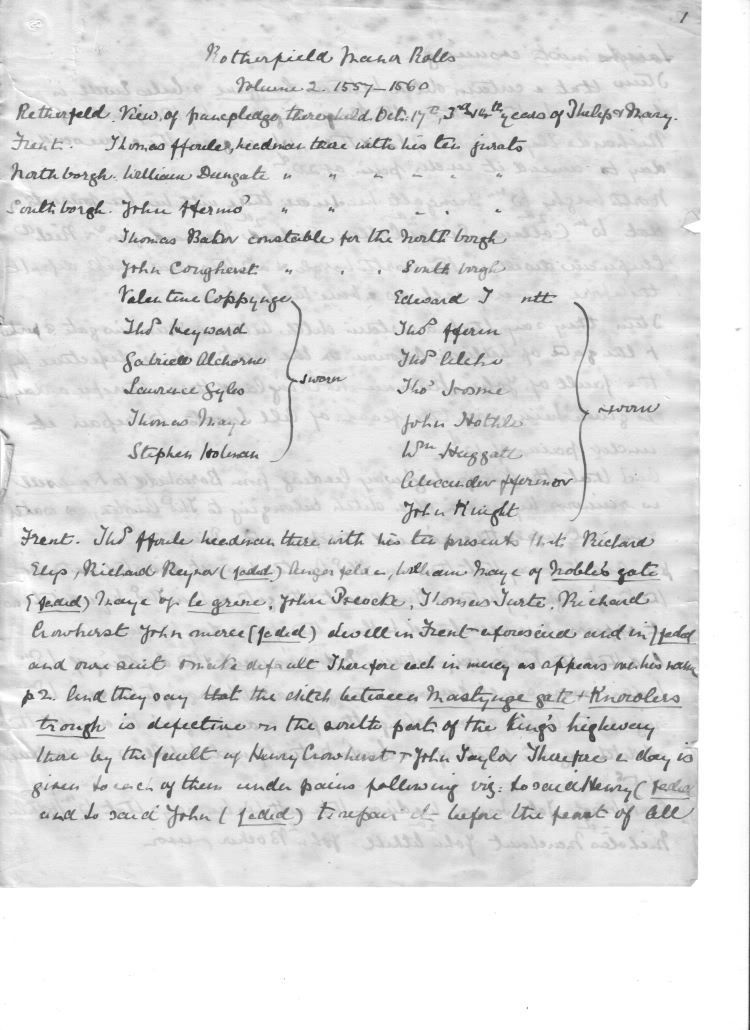 1
Rotherfield Manor Rolls
Volume 2. 1557–1560
Retherfeld. View of francpledge there held Oct: 17th, 3rd & 4th years of Philip & Mary.
Frent. Thomas ffoule, headman there with his ten jurats
Northborgh. William Dungate " " " " " "
Southborgh. John ffermor " " " " "
Thomas Baker constable for the North borgh
John Congherst " " " South borgh
Valentine Coppynge Edward T ntt
Thos Weyward Thos fferm
Gabriell Alchorne Thos Alcho
Lawrence Gyles sworn Thos Isosme
Thomas Maye John Hothle sworn
Stephen Holman Wm Huggett
Alexander ffermor
John Knight
Frent. Thos ffoule headman there with his ten presents that Richard
Elys, Richard Reynor (faded) William Maye of Noble's gate
(faded) Maye of le grene, John Pococke, Thomas Turte, Richard
Crowherst John (faded) dwell in Frent aforesaid and in (faded
and owe suit & make default Therefore each in mercy as appears over his name
p 2. And they say that the ditch between Mastynge gate & Knowlers
trough is defective on the south part of the King's highway
there by the fault of Henry Crowherst & John Taylor Therefore a day is
given to each of them under pains following viz: to said Henry (faded
and to said John (faded) to repair it before the feast of All